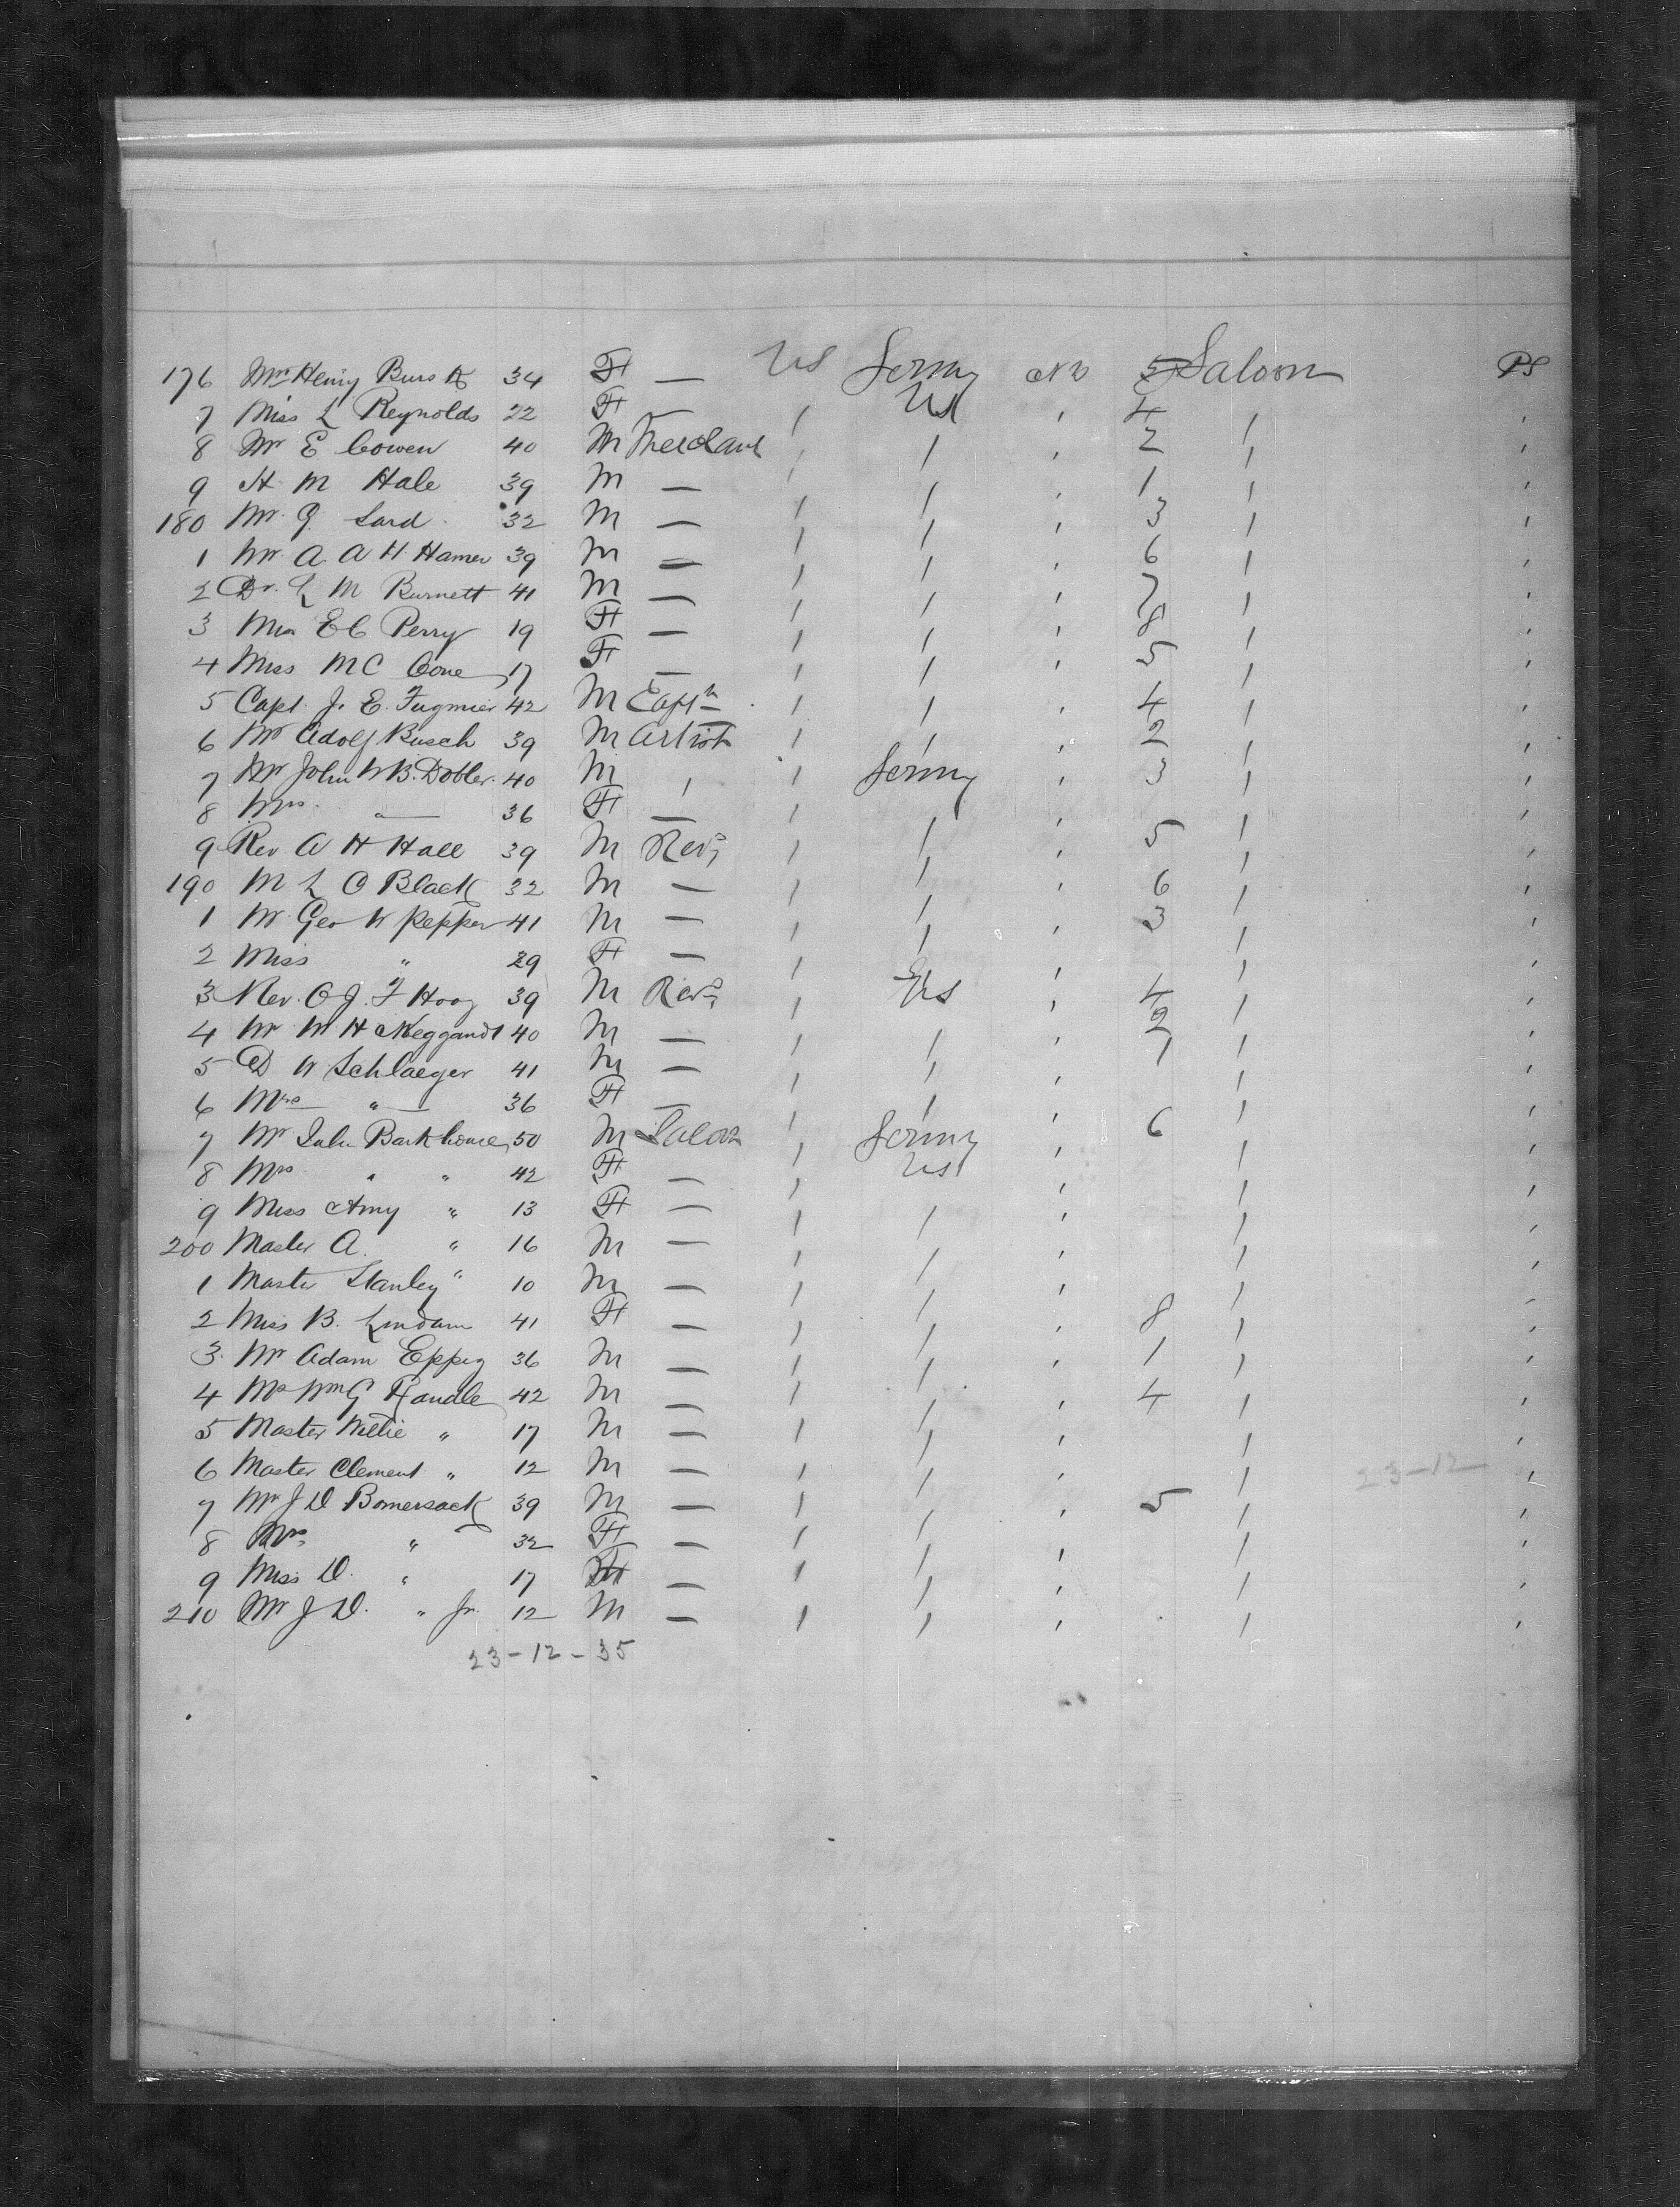 176 Mrs Henry Burs 34 F — US Germy NW 5 Saloon PS
7 Miss L Reynolds 22 F — / US , 4 / ,
8 Mr E Cowen 40 M Merchant / / , 2 / ,
9 H M Hale 39 M — / / , 1 / ,
180 Mr G. Lard 32 M — / / , 3 / ,
1 Mr. A. A H Hamer 39 M — / / , 6 / ,
2 Dr. L M Burnett 41 M — / / , 7 / ,
3 Miss E C Perry 19 F — / / , 8 / ,
4 Miss M C Cone 17 F — / / , 5 / ,
5 Capt. J. E. 42 M Captn / / , 4 / ,
6 Mr Adolf Busch 39 M Artist / / , 2 / ,
7 Mr John W B. Dobler 40 M / / Germy , 3 / ,
8 Mrs — 36 F — / , / ,
9 Rev A H Hall 39 M Revd / / , 5 / ,
190 M L O Black 32 M — / / , 6 / ,
1 Mr. Geo W Pepper 41 M — / / , 3 / ,
2 Miss " 29 F — / / , / ,
3 Rev. O J. F Hoog 39 M Revd / US , 4 / ,
4 Mr W H 40 M — / / , 2 / ,
5 D W Schlaeger 41 M — / / , 1 / ,
6 Mrs " 36 F — / / , / ,
7 Mr Barkhouse 50 M Saloon / Germy , 6 / ,
8 Mrs " " 42 F — / US , / ,
9 Miss Amy " 13 F — / / , / ,
200 Master A. " 16 M — / / , / ,
1 Master Stanley " 10 M — / / , / ,
2 Miss B. Lindam 41 F — / / , 8 / ,
3 Mr Adam Eppig 36 M — / / , 1 / ,
4 Mr Wm G Randle 42 M — / / , 4 / ,
5 Master Willie " 17 M — / / , / ,
6 Master Clement " 12 M — / / , / 23-12- ,
7 Mr J D Bomersack 39 M — / / , 5 / ,
8 Mrs " 32 F — / / , / ,
9 Miss D. " 17 F — / / , / ,
210 Mr J D. " Jr. 12 M — / / , / ,
23-12-35